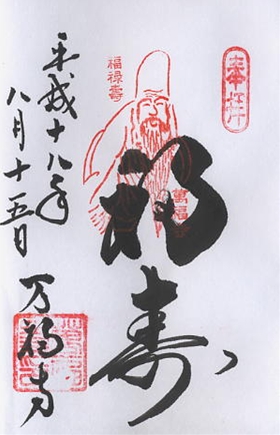 奉拝
福禄壽
福寿
萬福
平成十八年
八月十五日
万福寺